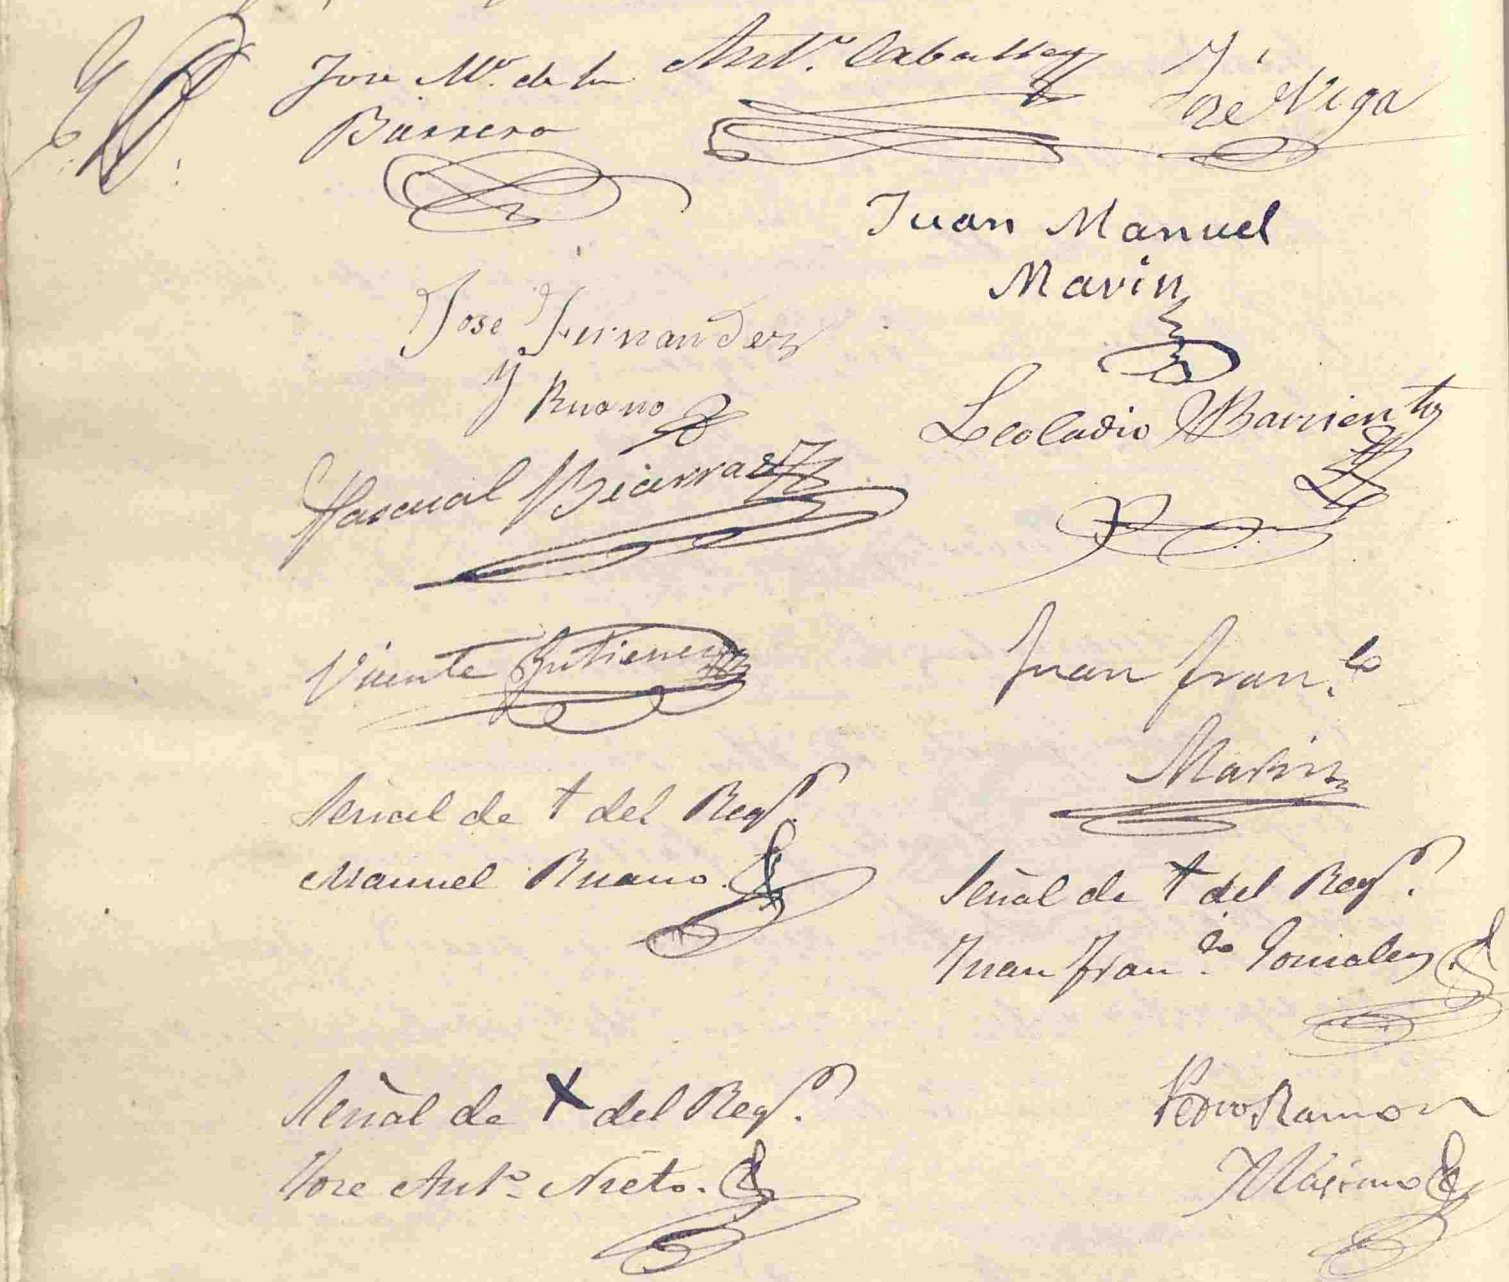 Jose M.ª de la
Barrera
Ant.º Caballero
José Vega
Juan Manuel
Marin
Jose Fernandez
y Ruano
Leocadio Barrientos
Pascual
Vicente Gutierrez
Juan Fran.co
Marin
Señal de + del Reg.r
Manuel Ruano.
Señal de + del Reg.r
Juan Fran.co Gonzalez
Señal de X del Reg.r
Jose Ant.º Nieto.
Pedro Ramon
Maximo